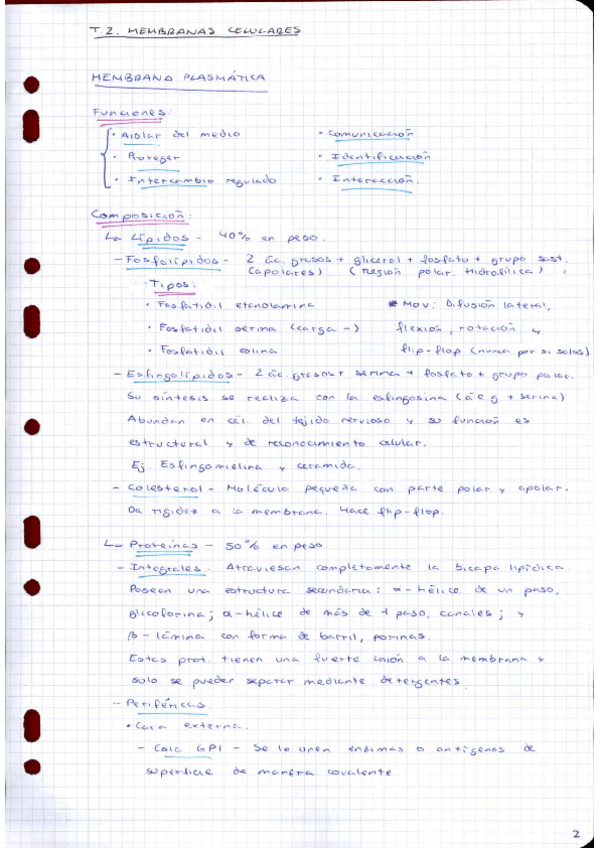 T.2. MEMBRANAS CELULARES
MEMBRANA PLASMÁTICA
Funciones:
· Aislar del medio
· Comunicación
· Proteger
· Identificación
· Intercambio regulado
· Interacción.
Composición:
↳ Lípidos - 40% en peso.
- Fosfolípidos - 2 ác. grasos + glicerol + fosfato + grupo sust.
(apolares) (Región polar. Hidrofílica)
Tipos:
· Fosfatidil etanolamina
* Mov: Difusión lateral,
· Fosfatidil serina (carga -)
flexión, rotación y
· Fosfatidil colina
flip-flop (nunca por si solos)
- Esfingolípidos - 2 ác. grasos + serina + fosfato + grupo polar.
Su síntesis se realiza con la esfingosina (ác g + serina)
Abundan en cél. del tejido nervioso y su función es
estructural y de reconocimiento celular.
Ej. Esfingomielina y ceramida.
- Colesterol - Molécula pequeña con parte polar y apolar.
Da rigidez a la membrana. Hace flip-flop.
↳ Proteínas - 50% en peso
- Integrales. Atraviesan completamente la bicapa lipídica.
Poseen una estructura secundaria: α-hélice de un paso,
glicoforina; α-hélice de más de 1 paso, canales; y
β-lámina con forma de barril, porinas.
Estas prot. tienen una fuerte unión a la membrana y
solo se pueden separar mediante detergentes.
- Periféricas.
· Cara externa.
- Cola GPI - Se le unen enzimas o antígenos de
superficie de manera covalente
2